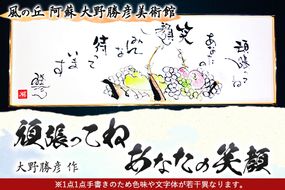 風の丘 阿蘇 大野勝彦美術館
頑張ってね
あなたの
笑顔
みんな
待って
います
頑張ってね
あなたの笑顔
大野勝彦 作
※1点1点手書きのため色味や文字体が若干異なります。